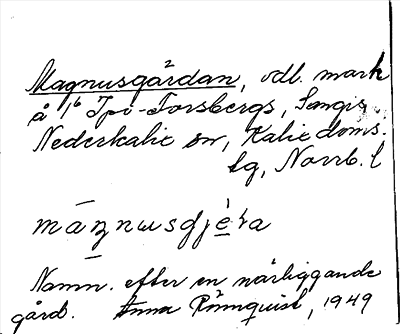 Magnusgårdan, odl. mark
å 1⁶ Ipi-Forsbergs, Sangis,
Nederkalix sn, Kalix doms.
lg, Norrb. l
māŋnɯsgjèṛa
Namn. efter en närliggande
gård. Anna Rönnquist, 1949